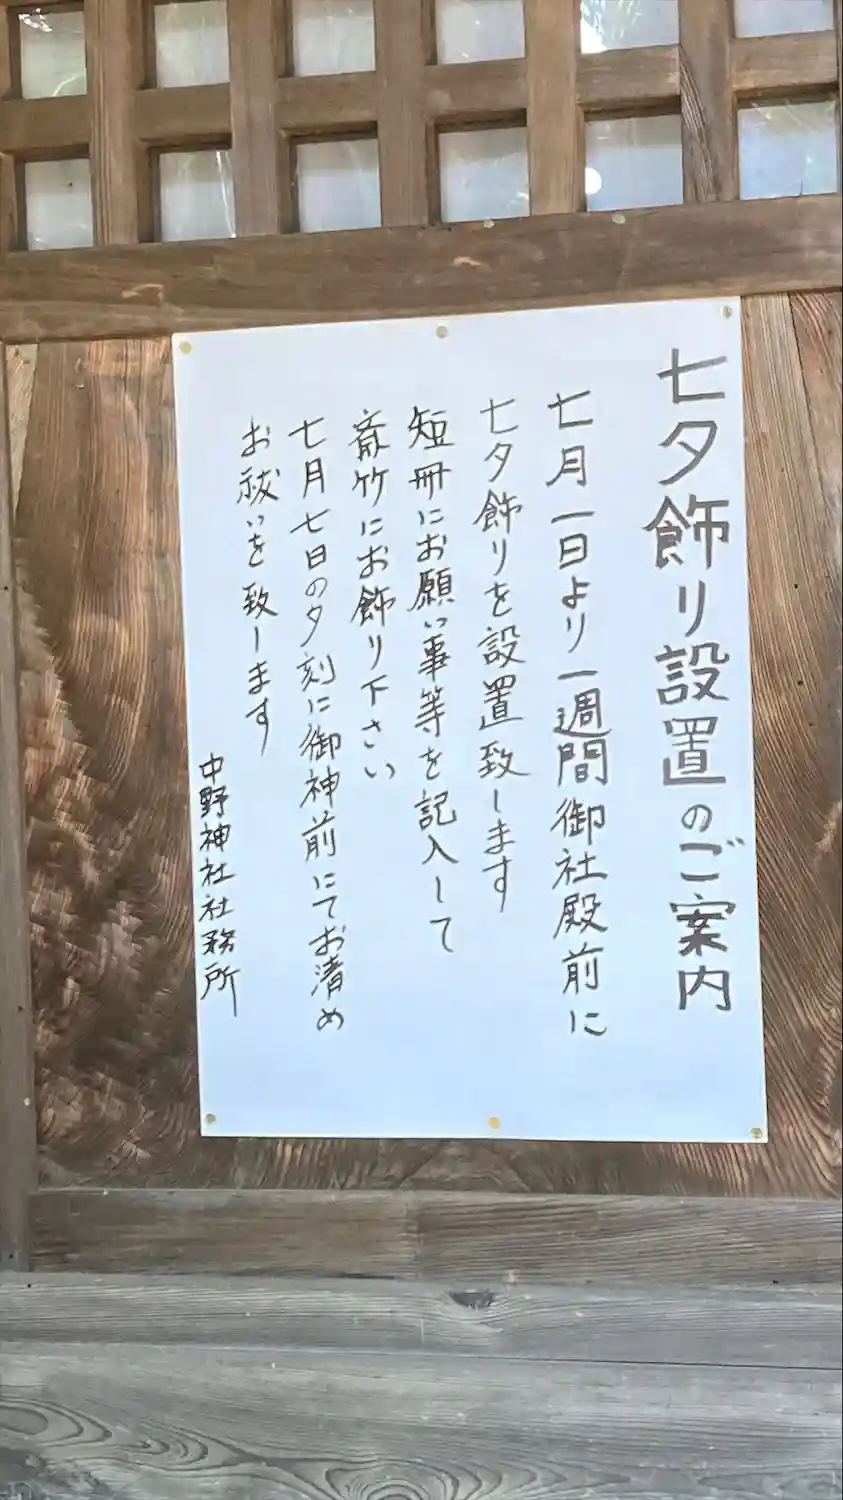 七夕飾り設置のご案内
七月一日より一週間御社殿前に
七夕飾りを設置致します
短冊にお願い事等を記入して
斎竹にお飾り下さい
七月七日の夕刻に御神前にてお清め
お祓いを致します
中野神社社務所